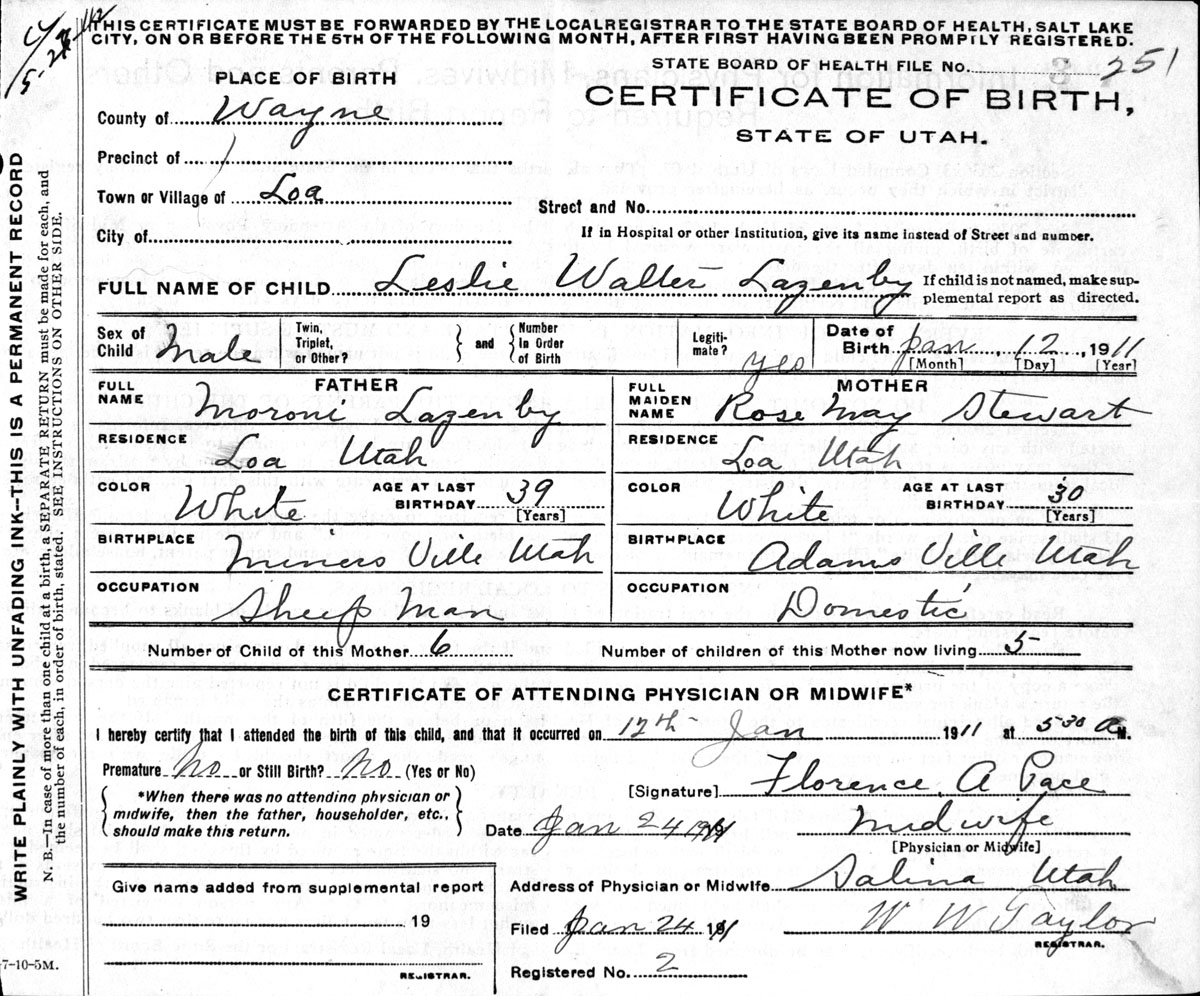 THIS CERTIFICATE MUST BE FORWARDED BY THE LOCAL REGISTRAR TO THE STATE BOARD OF HEALTH, SALT LAKE
CITY, ON OR BEFORE THE 5TH OF THE FOLLOWING MONTH, AFTER FIRST HAVING BEEN PROMPTLY REGISTERED.
STATE BOARD OF HEALTH FILE No. 251
PLACE OF BIRTH
CERTIFICATE OF BIRTH,
STATE OF UTAH.
County of Wayne
Precinct of
Town or Village of Loa
Street and No.
City of
If in Hospital or other Institution, give its name instead of Street and number.
FULL NAME OF CHILD Leslie Walter Lazenby
If child is not named, make sup-
plemental report as directed.
Sex of Child Male
Twin, Triplet, or Other?
and
Number In Order of Birth
Legiti-mate? yes
Date of Birth Jan 12, 1911
[Month] [Day] [Year]
FATHER
FULL NAME Moroni Lazenby
RESIDENCE Loa Utah
COLOR White AGE AT LAST BIRTHDAY 39 [Years]
BIRTHPLACE Miners Ville Utah
OCCUPATION Sheep Man
MOTHER
FULL MAIDEN NAME Rose May Stewart
RESIDENCE Loa Utah
COLOR White AGE AT LAST BIRTHDAY 30 [Years]
BIRTHPLACE Adams Ville Utah
OCCUPATION Domestic
Number of Child of this Mother 6 Number of children of this Mother now living 5
CERTIFICATE OF ATTENDING PHYSICIAN OR MIDWIFE*
I hereby certify that I attended the birth of this child, and that it occurred on 12th Jan 1911 at 5-30 A M.
Premature No or Still Birth? No (Yes or No)
*When there was no attending physician or
midwife, then the father, householder, etc.,
should make this return.
[Signature] Florence A Pace
Date Jan 24 1911 Midwife
[Physician or Midwife]
Give name added from supplemental report
19
REGISTRAR.
Address of Physician or Midwife Salina Utah
Filed Jan 24 1911 W W Taylor
REGISTRAR.
Registered No. 2
7-10-5M.
WRITE PLAINLY WITH UNFADING INK—THIS IS A PERMANENT RECORD
N. B.—In case of more than one child at a birth, a SEPARATE RETURN must be made for each, and
the number of each, in order of birth, stated. SEE INSTRUCTION ON OTHER SIDE.